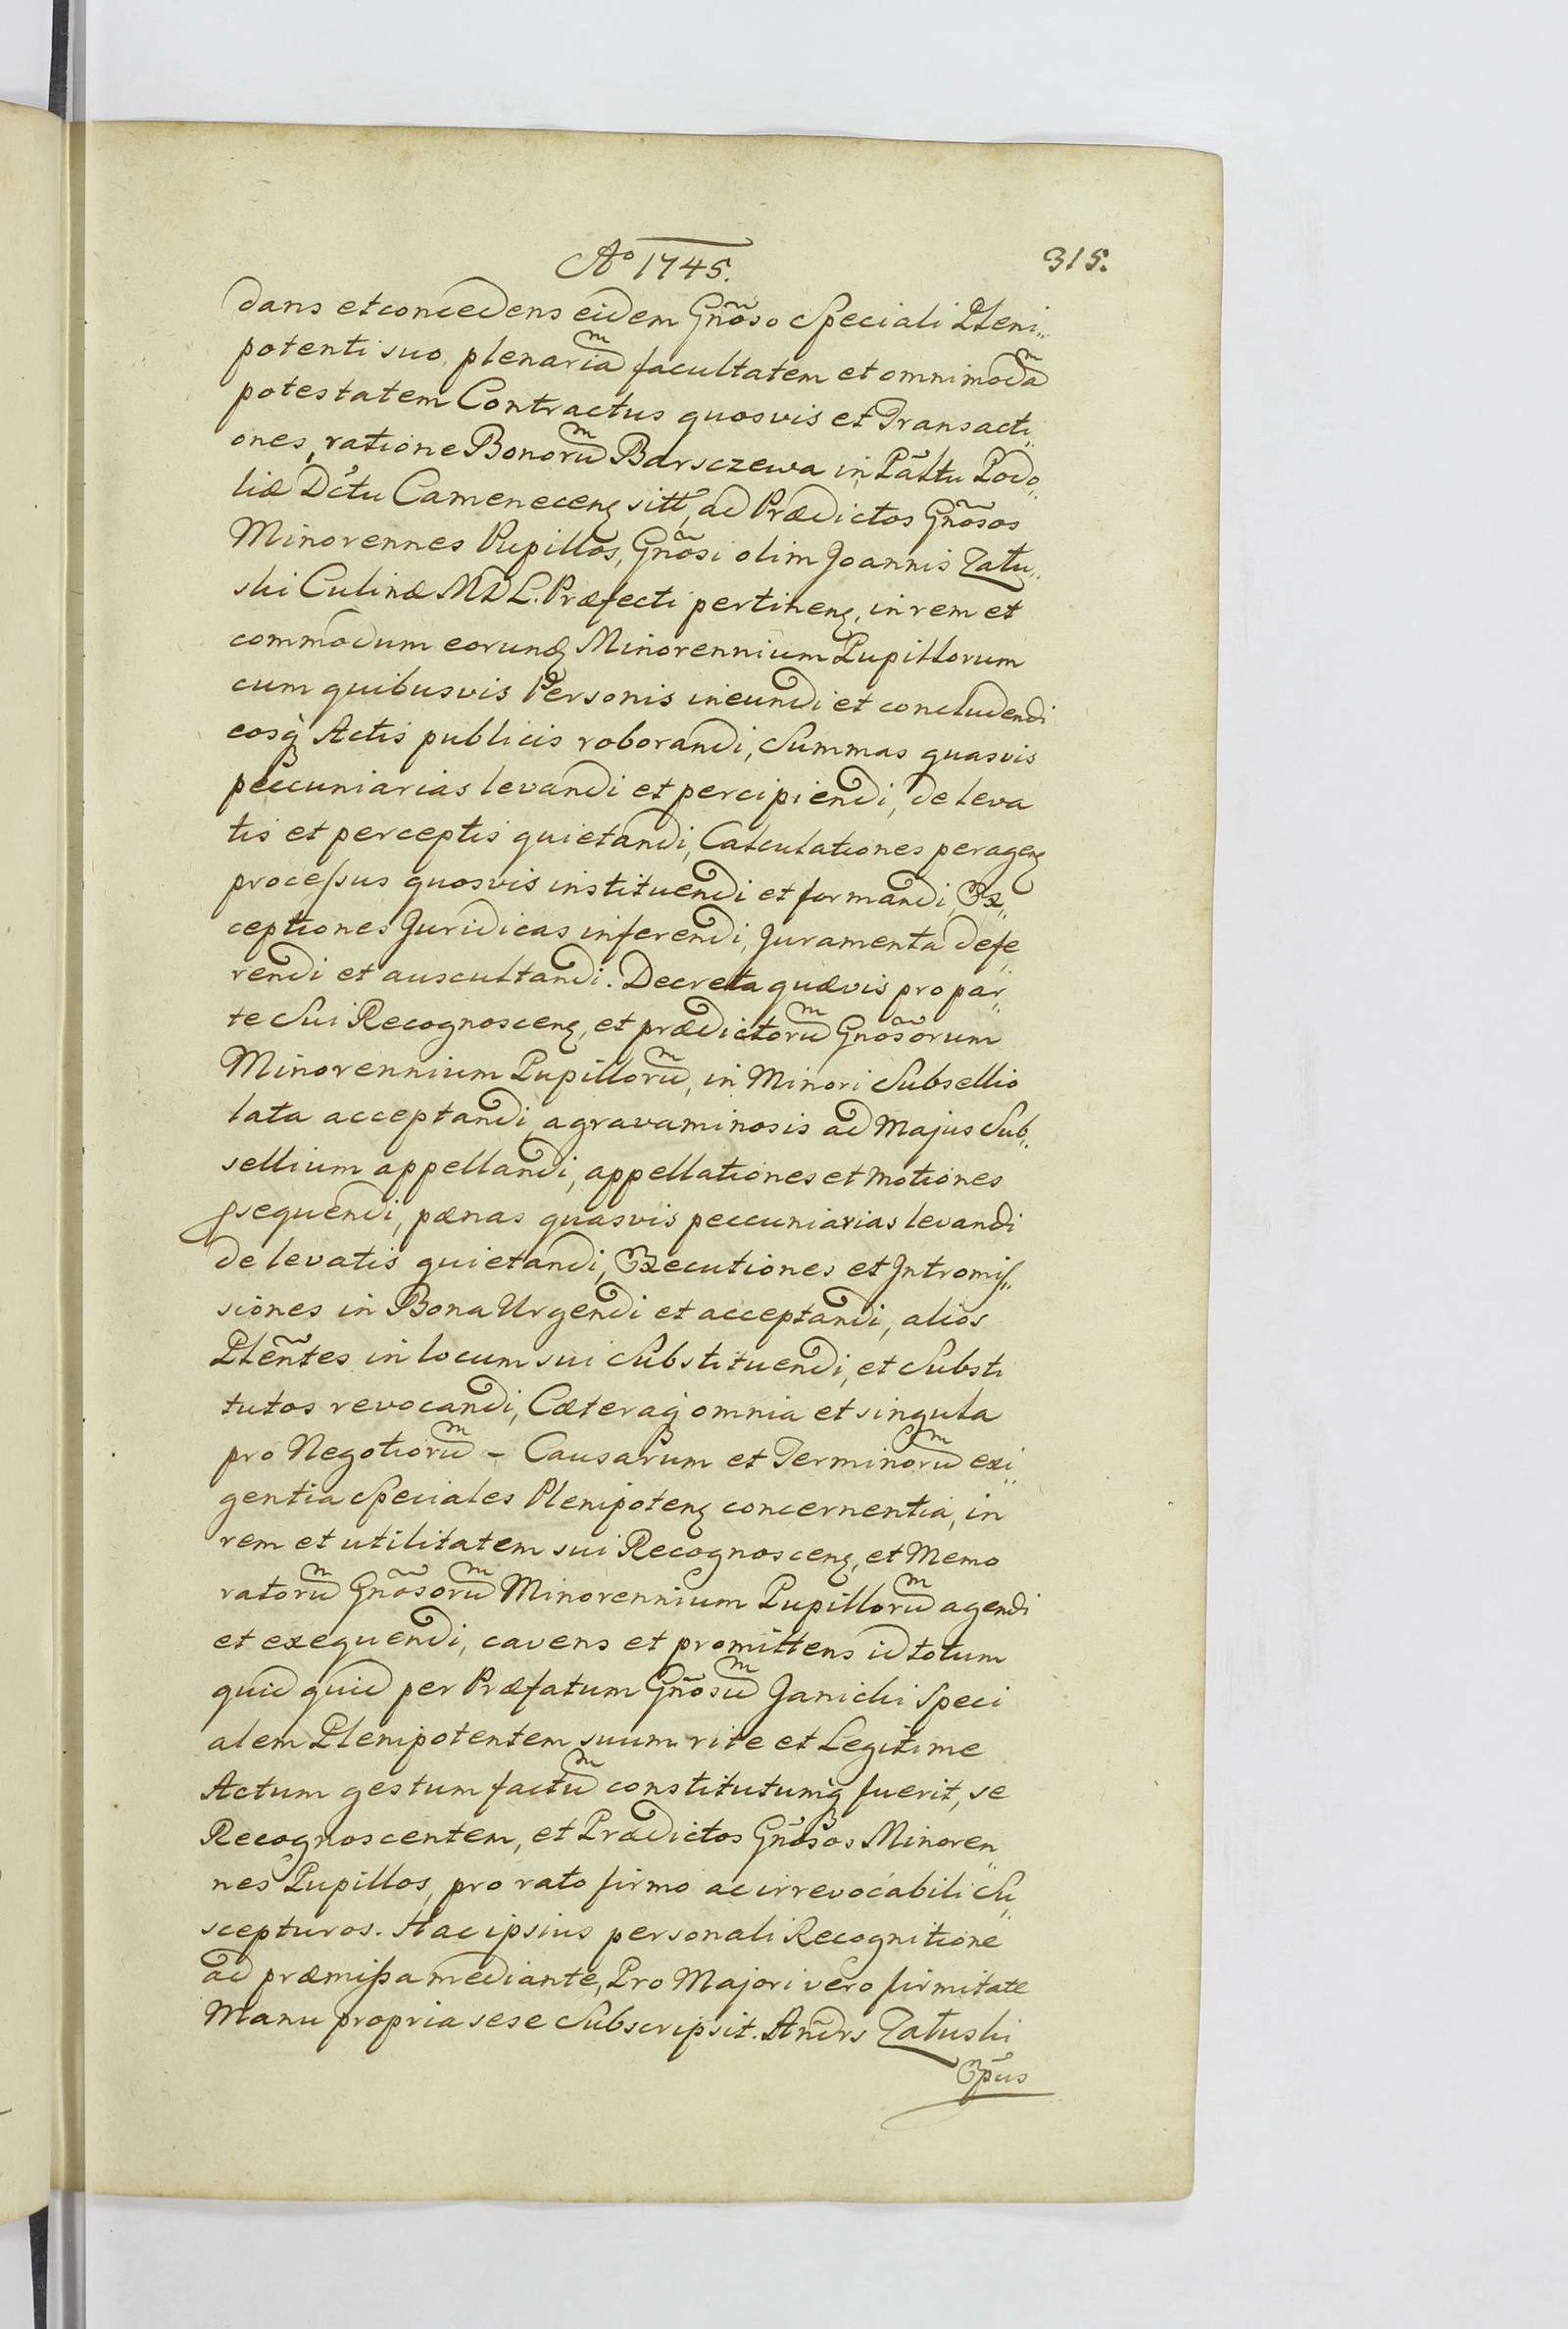 Aº 1745. 315.
dans et concedens eidem Gnõso Speciali Pleni„
potenti suo, plenariaᵐ facultatem et omnimodaᵐ
potestatem Contractus quosvis et Transacti„
ones, ratione Bonoruᵐ Barsczewa in Pãltu Podo„
liæ Dc̃tu Camenecenʒ sitt, ad Prædictos Gnõsos
Minorennes Pupillos, Gnõsi olim Joannis Zału„
ski Culinæ MDL. Præfecti pertinenʒ, in rem et
commodum eorundʒ Minorennium Pupillorum
cum quibusvis Personis ineundi et concludendi
eosq̃ Actis publicis roborandi, Summas quasvis
peccuniarias levandi et percipiendi, de leva
tis et perceptis quietandi, Calculationes peragenʒ
processus quosvis instituendi et formandi, Ex„
ceptiones Juridicas inferendi, Juramenta defe„
rendi et auscultandi. Decreta quævis pro par„
te Sui Recognoscenʒ, et prædictoruᵐ Gnõsorum
Minorennium Pupilloruᵐ, in Minori Subsellio
lata acceptandi, agravaminosis ad Majus Sub„
sellium appellandi, appellationes et motiones
ꝓsequendi, pænas quasvis peccuniarias levandi
de levatis quietandi, Executiones et Intromis„
siones in Bona Urgendi et acceptandi, alios
Plẽntes in locum sui Substituendi, et Substi
tutos revocandi, Cæteraq̃ omnia et singula
pro Negotioruᵐ - Causarum et Terminoruᵐ exi„
gentia Speciales Plenipotenʒ concernentia, in
rem et utilitatem sui Recognoscenʒ, et Memo
ratoruᵐ Gnõsoruᵐ Minorennium Pupilloruᵐ agendi
et exequendi, cavens et promittens id totum
quid quid per Præfatum Gnõsuᵐ Janicki Speci
alem Plenipotentem suum rite et Legitime
Actum gestum factuᵐ constitutumq̃ fuerit, se
Recognoscentem, et Prædictos Gnõsos Minoren„
nes Pupillos, pro rato firmo ac irrevocabili Su„
scepturos. Hac ipsius personali Recognitione
ad præmissa mediante, Pro Majori vero firmitate
Manu propria sese Subscripsit. Andr̃s Załuski
Ep̃us